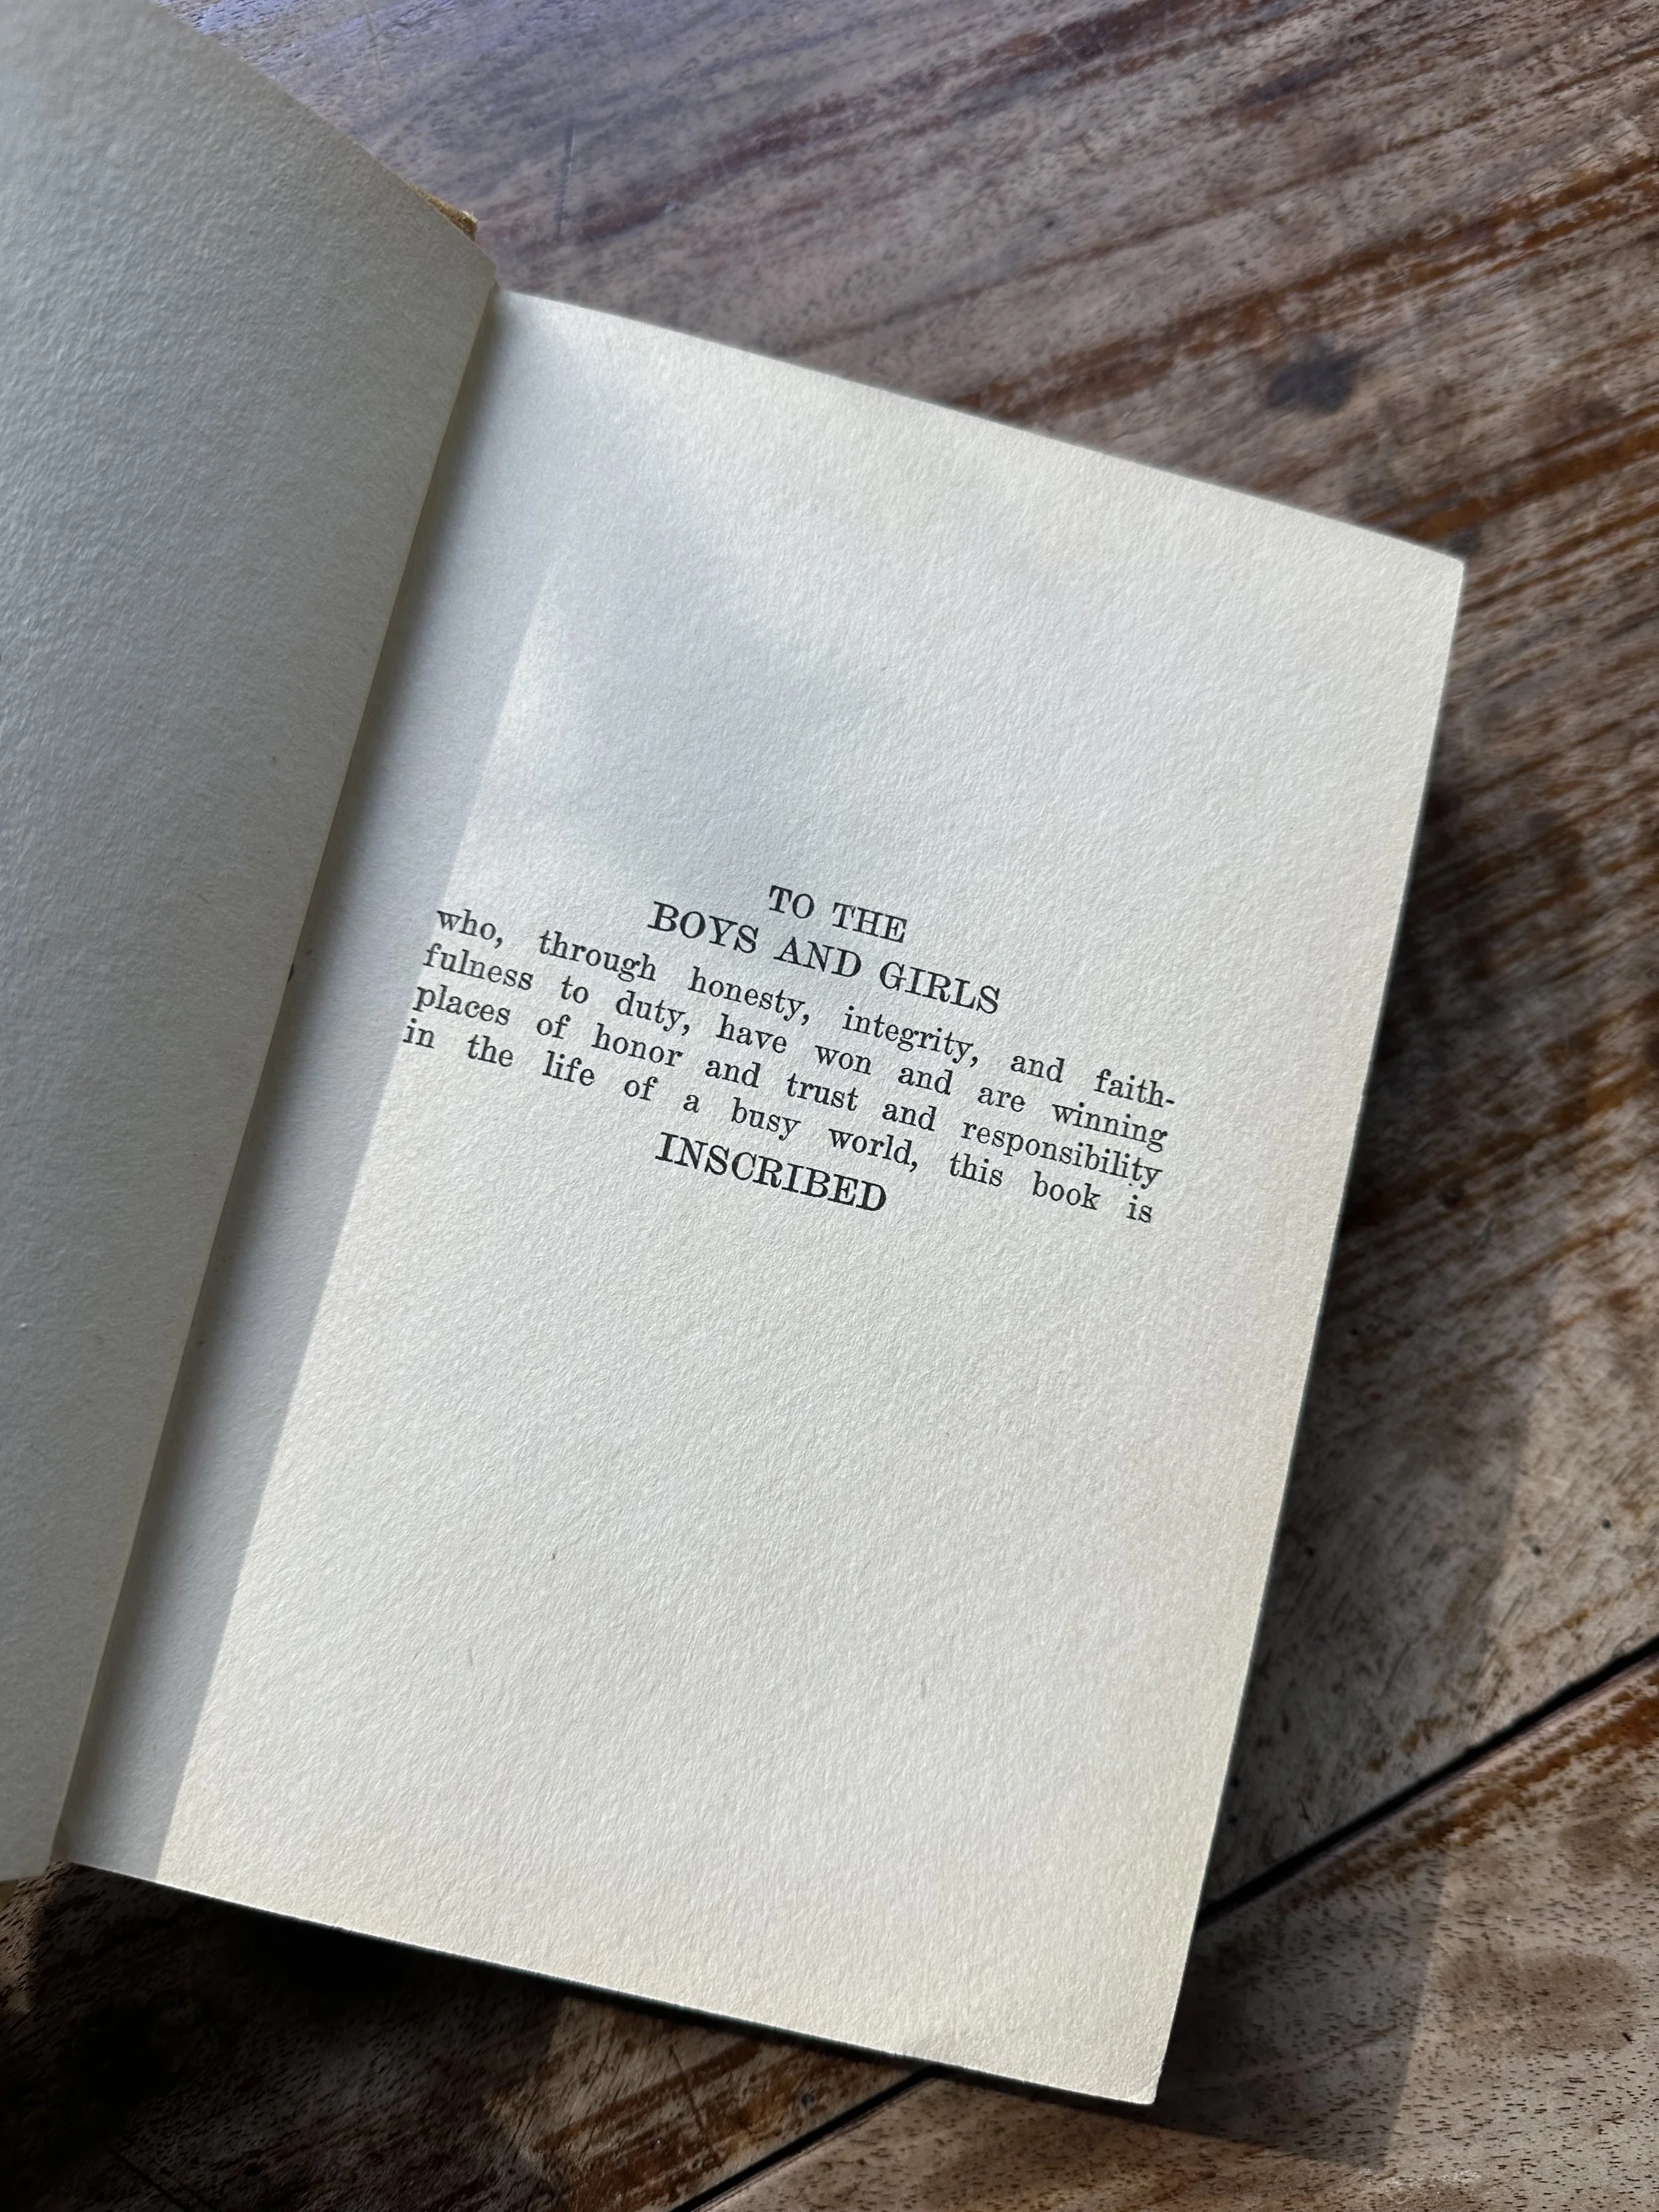 TO THE
BOYS AND GIRLS
who, through honesty, integrity, and faith-
fulness to duty, have won and are winning
places of honor and trust and responsibility
in the life of a busy world, this book is
INSCRIBED